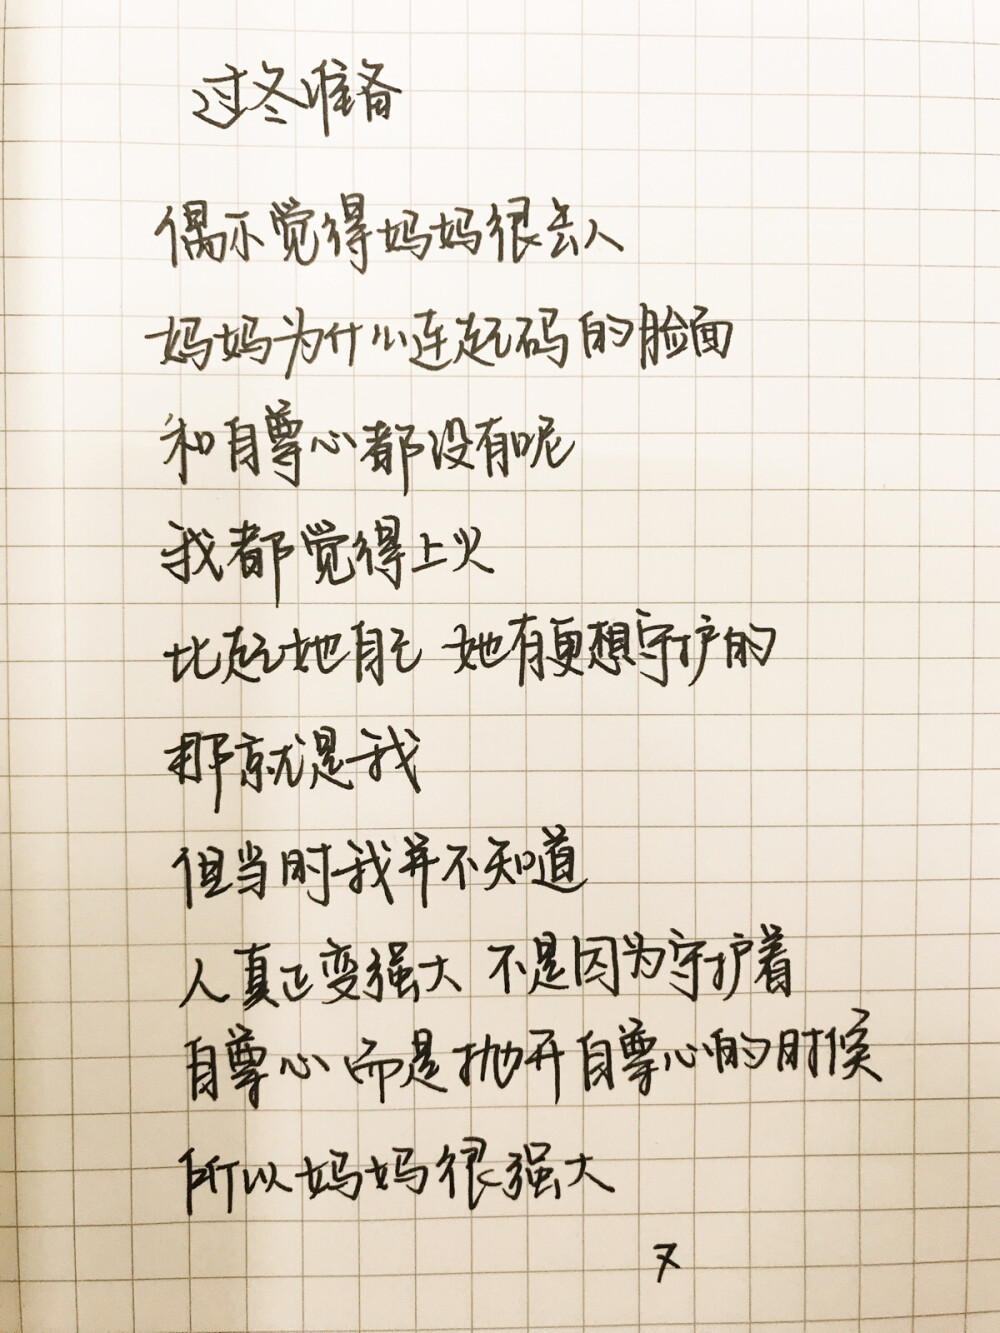 过冬准备
偶尔觉得妈妈很丢人
妈妈为什么连起码的脸面
和自尊心都没有呢
我都觉得上火
比起她自己 她有更想守护的
那就是我
但当时我并不知道
人真正变强大 不是因为守护着
自尊心而是抛开自尊心的时候
所以妈妈很强大